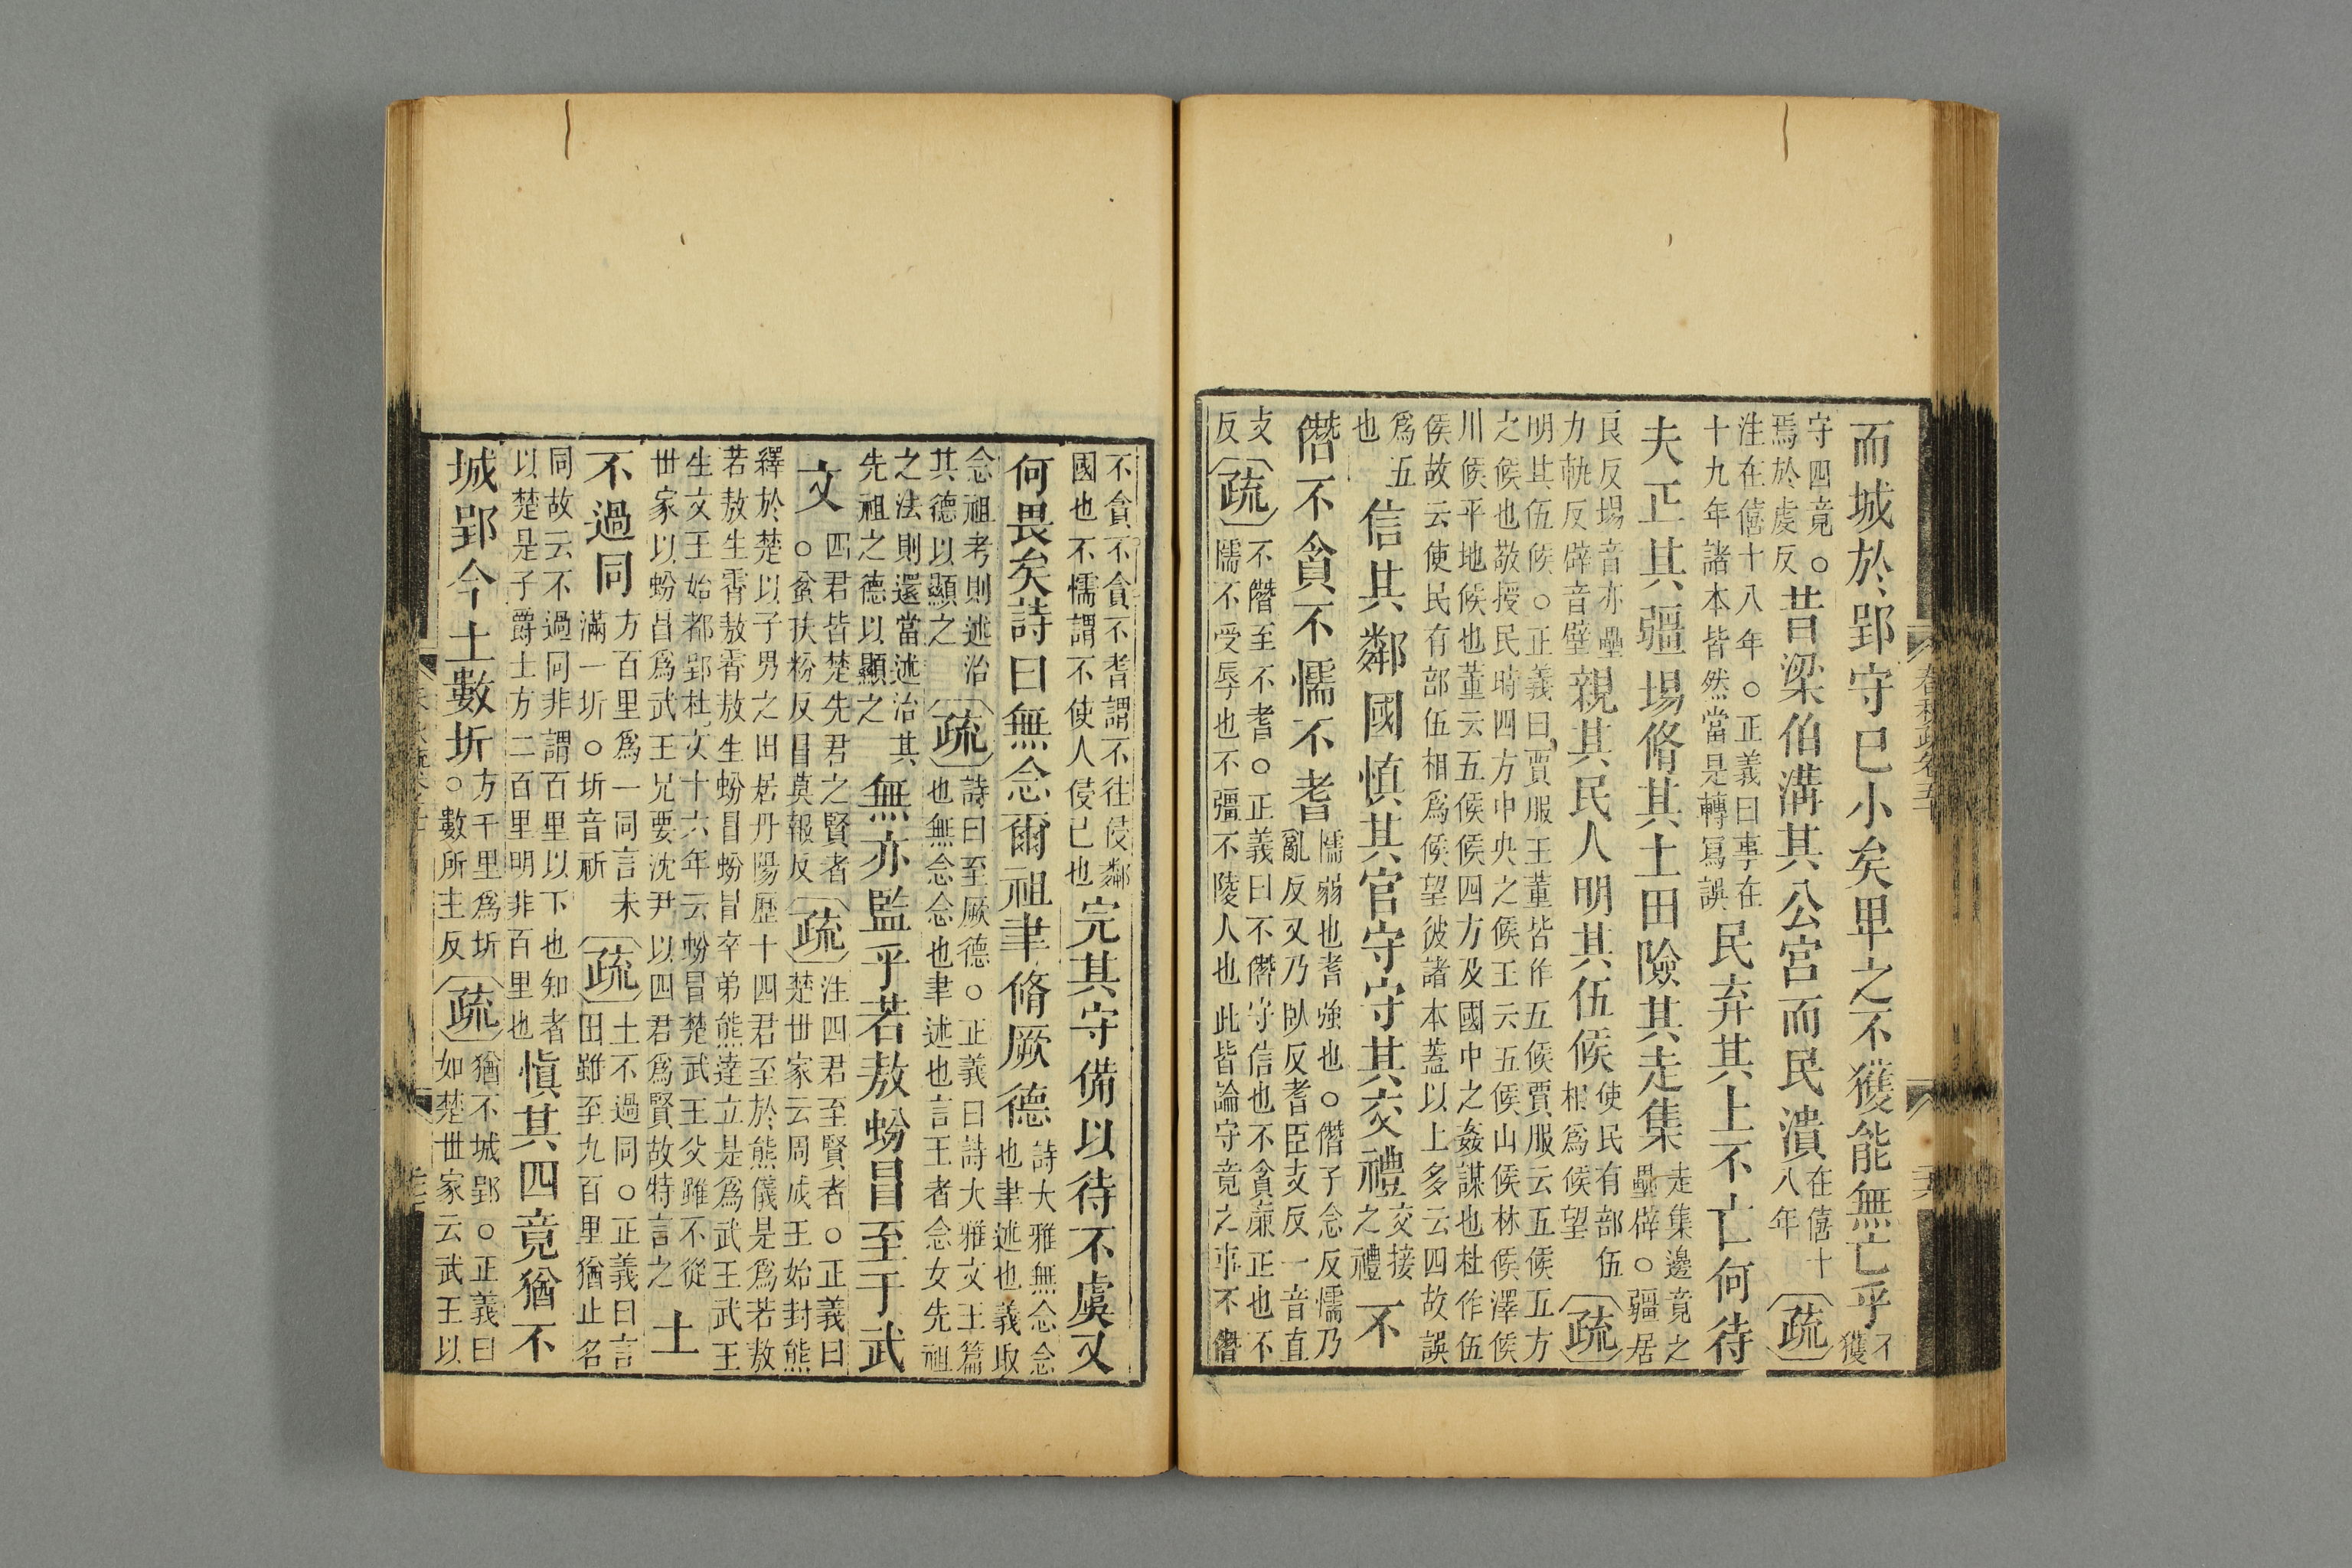 而城於郢守已小矣卑之不獲能無亡乎不獲
守四竟○焉於虔反昔梁伯溝其公宮而民潰在僖十八年疏
注在僖十八年○正義曰事在十九年諸本皆然當是轉寫誤民弃其上不亡何待
夫正其疆埸脩其土田險其走集走集邊竟之壘辟○疆居
良反埸音亦壘力軌反辟音壁親其民人明其伍候使民有部伍相爲候望疏
明其伍候○正義曰賈服王董皆作五候賈服云五候五方之候也敬授民時四方中央之候王云五候山候林候澤候
川候平地候也董云五候候四方及國中之姦謀也杜作伍侯故云使民有部伍相爲候望彼諸本蓋以上多云四故誤
爲五也信其鄰國慎其官守守其交禮交接之禮不
僭不貪不懦不耆懦弱也耆強也○僭子念反懦乃亂反又乃臥反耆臣支反一音直
支反疏不僭至不耆○正義曰不僭守信也不貪廉正也不懦不受辱也不彊不陵人也此皆論守竟之事不僭
不貪不貪不耆謂不往侵鄰國也不懦謂不使人侵已也完其守備以待不虞又
何畏矣詩曰無念爾祖聿脩厥德詩大雅無念念也聿述也義取
念祖考則述治其德以顯之疏詩曰至厥德○正義曰詩大雅文王篇也無念念也聿述也言王者念女先祖
之法則還當述治其先祖之德以顯之無亦監乎若敖蚡冒至于武
文四君皆楚先君之賢者○蚡扶粉反冒莫報反疏注四君至賢者○正義曰楚世家云周成王始封熊
繹於楚以子男之田居丹陽歷十四君至於熊儀是爲若敖若敖生霄敖霄敖生蚡冒蚡冒卒弟熊達立是爲武王武王
生文王始都郢杜文十六年云蚡冒楚武王父雖不從世家以蚡冒爲武王兄要沈尹以四君爲賢故特言之土
不過同方百里爲一同言未滿一圻○圻音祈疏土不過同○正義曰言土田雖至九百里猶止名
同故云不過同非謂百里以下也知者以楚是子爵土方二百里明非百里也慎其四竟猶不
城郢今土數圻方千里爲圻○數所主反疏猶不城郢○正義曰如楚世家云武王以